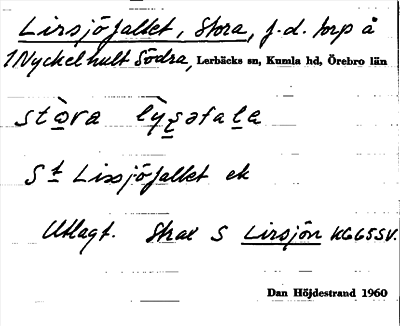 Lirsjöfallet, Stora, f.d. torp å
1 Nyckelhult Södra, Lerbäcks sn, Kumla hd, Örebro län
stòra
St Lissjöfallet ek
Utlagt. Strax S Lirsjön KG65SV.
Dan Höjdestrand 1960